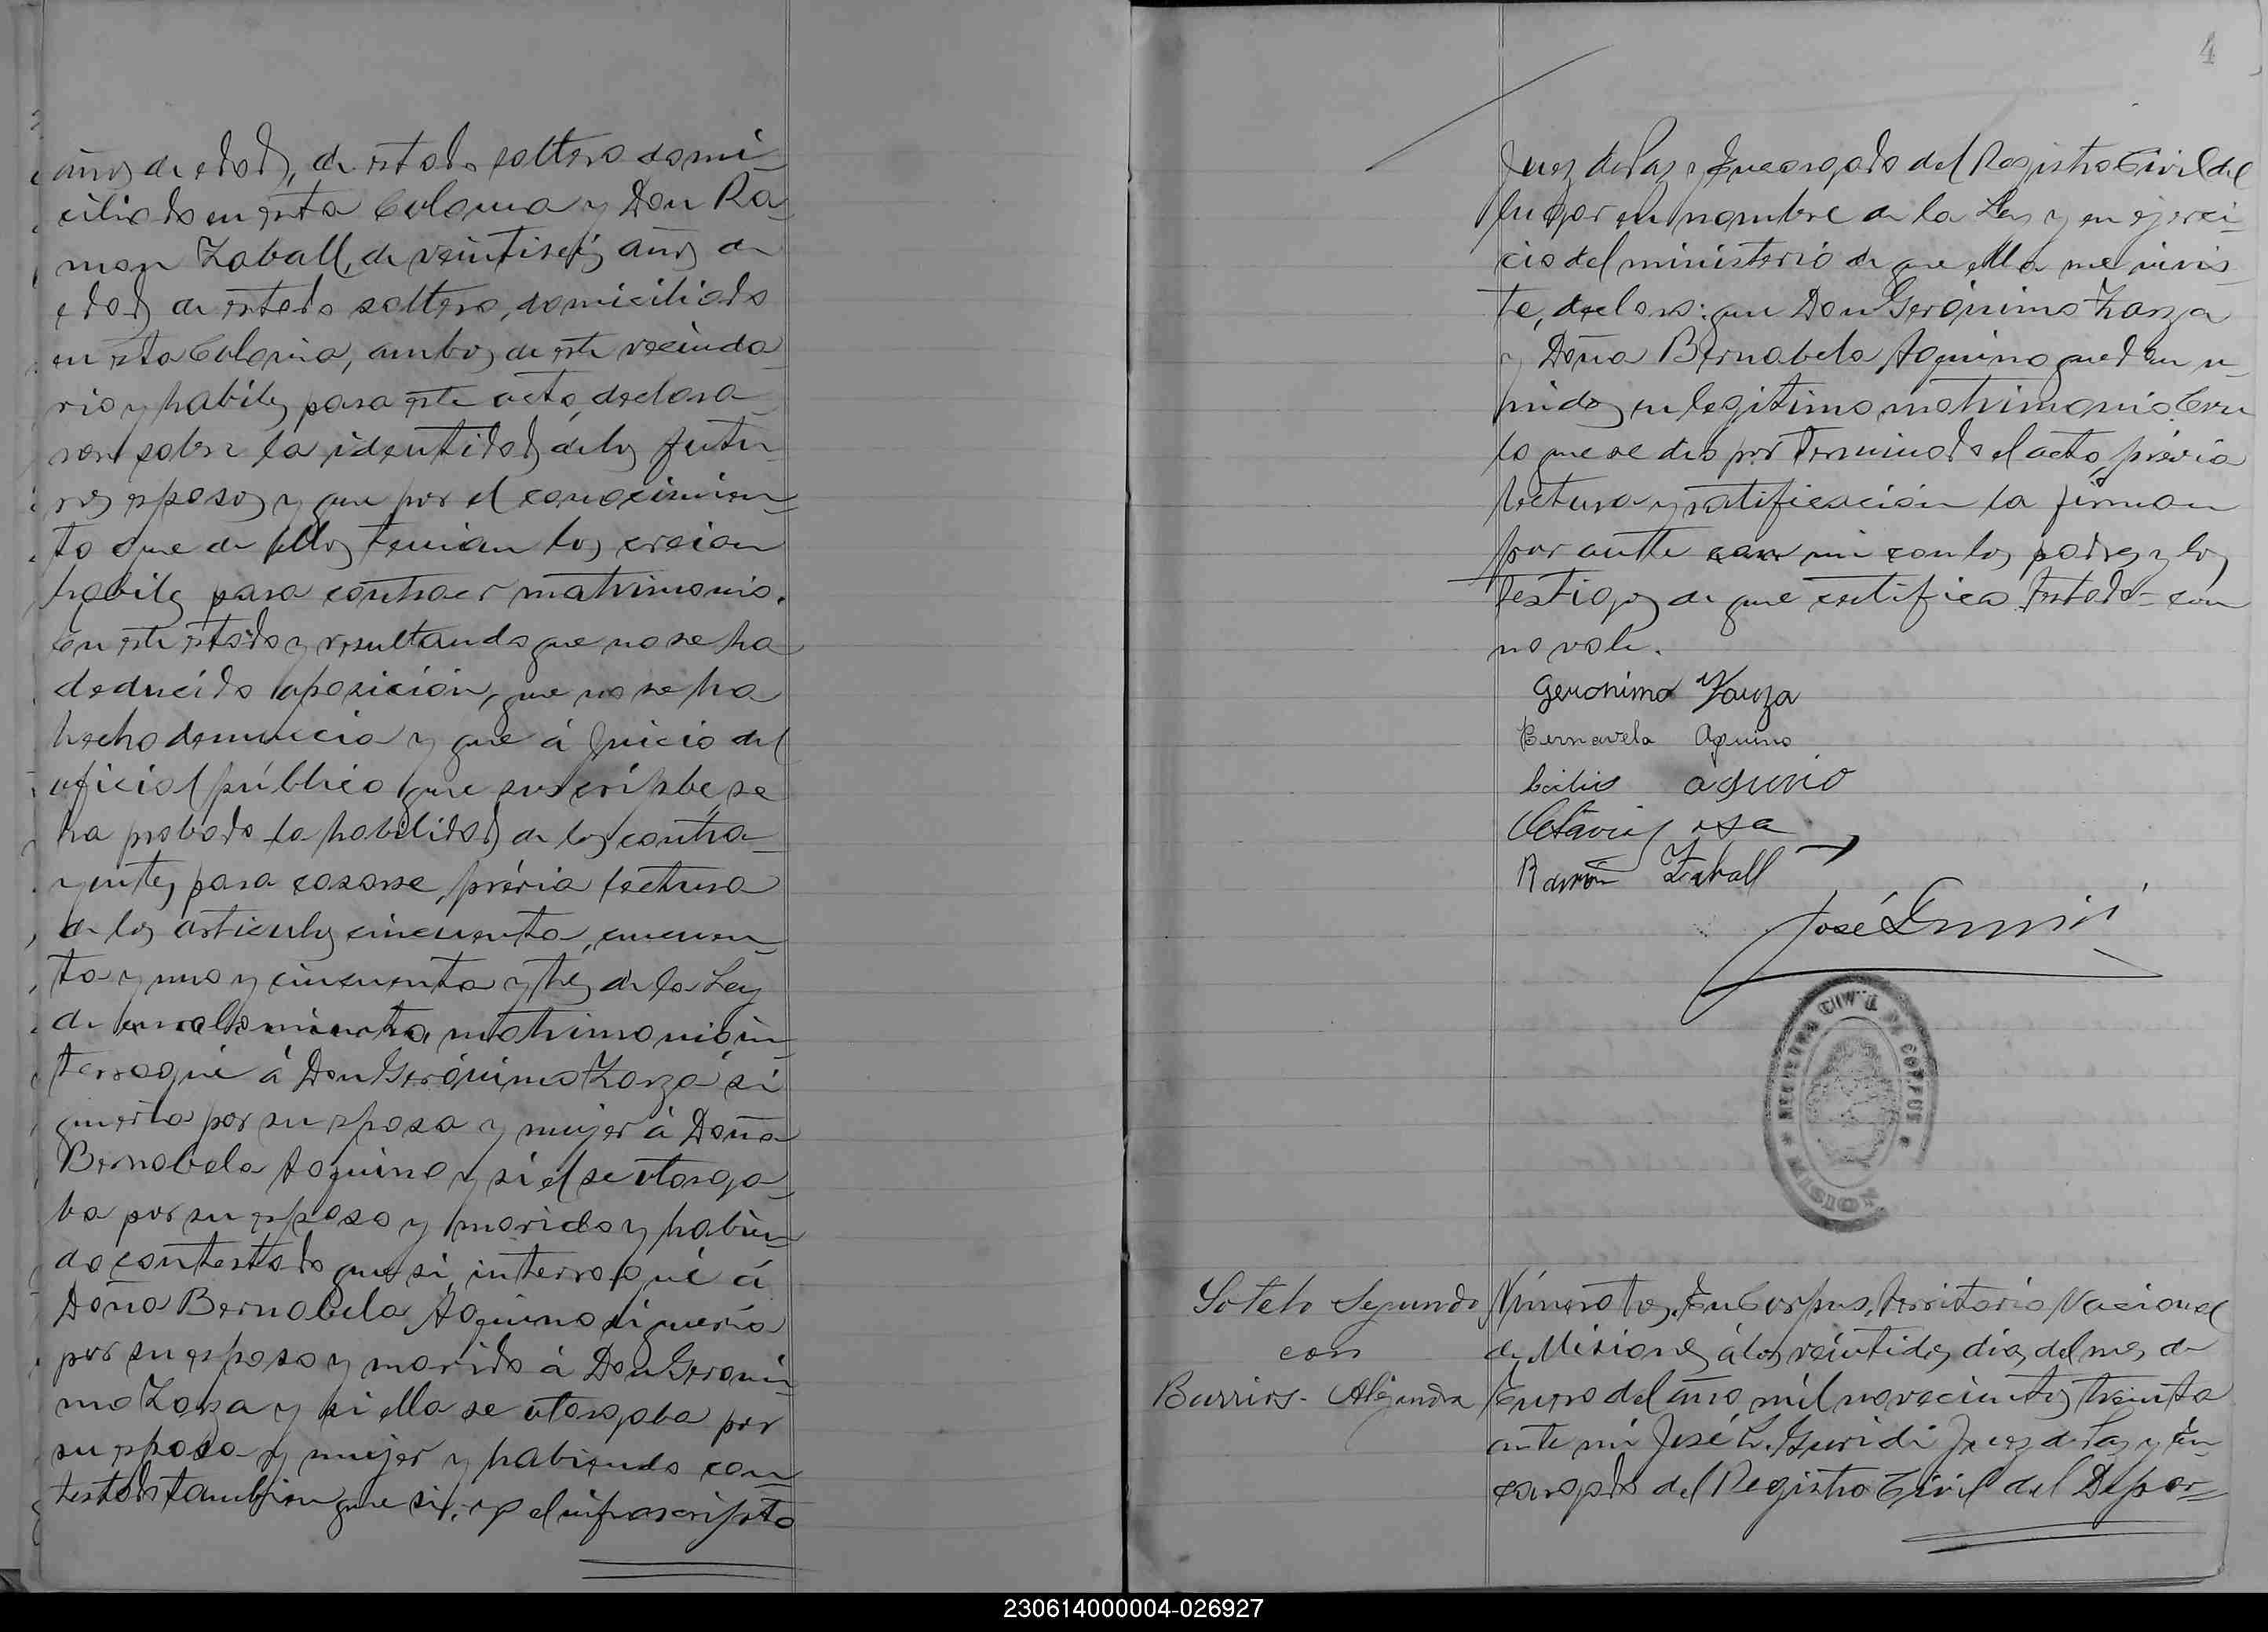 años de edad, de estado soltero domi
ciliado en esta Colonia y Don Ra-
mon Zaball, de veintiseis años de
edad de estado soltero, domiciliado
en esta Colonia, ambos de este vecinda-
rio y habiles para este acto, declara-
ron sobre la identidad de los futu-
ros esposos y que por el conocimien-
to que de ellos tenian los creian
habiles para contraer matrimonio.
En este estado y resultando que no se ha
deducido oposición, que no se ha
hecho denuncia y que á juicio del
oficial público que suscripbe se
ha probado la habilidad de los contra-
yentes para casarse, prévia lectura
de los articulos cincuenta, cincuen-
ta y uno y cincuenta y tres de la Ley
de matrimonio in-
terrogué á Don Gerónimo Zarza si
queria por su esposa y mujer á Doña
Bernabela Aquino y si el se otorga-
ba por su esposo y marido y habien-
do contestado que si, interrogué á
Doña Bernabela Aquino si queria
por su esposo y marido á Don Geroni-
mo Zarza y si ella se otorgaba por
su esposa y mujer y habiendo con-
testado tambien que si, yo el infrascripto
4
Juez de Paz y Encargado del Registro Civil del
lugar en nombre de la Ley y en ejerci-
cio del ministerio de que ella me invis-
te, declaro: que Don Gerónimo Zarza
y Doña Bernabela Aquino quedan u-
nidos en legitimo matrimonio. Con
lo que se dió por terminado el acto, prévia
lectura y ratificación la firman
por ante con mi con los padres y los
testigos de que certifico. Testado = con
no vale.
Geronimo Zarza
Bernavela Aquino
aquino
Octavio
Ramón Zaball
José
REGISTRO CIVIL DE CORPUS
MISIONES
Sotelo Segundo
con
Barrios - Alejandra
Número tres. En Corpus, Territorio Nacional
de Misiones á los veintidos dias del mes de
Enero del año mil novecientos treinta
ante mi José L. Guridi Juez de Paz y En-
cargado del Registro Civil del Depar-
230614000004-026927